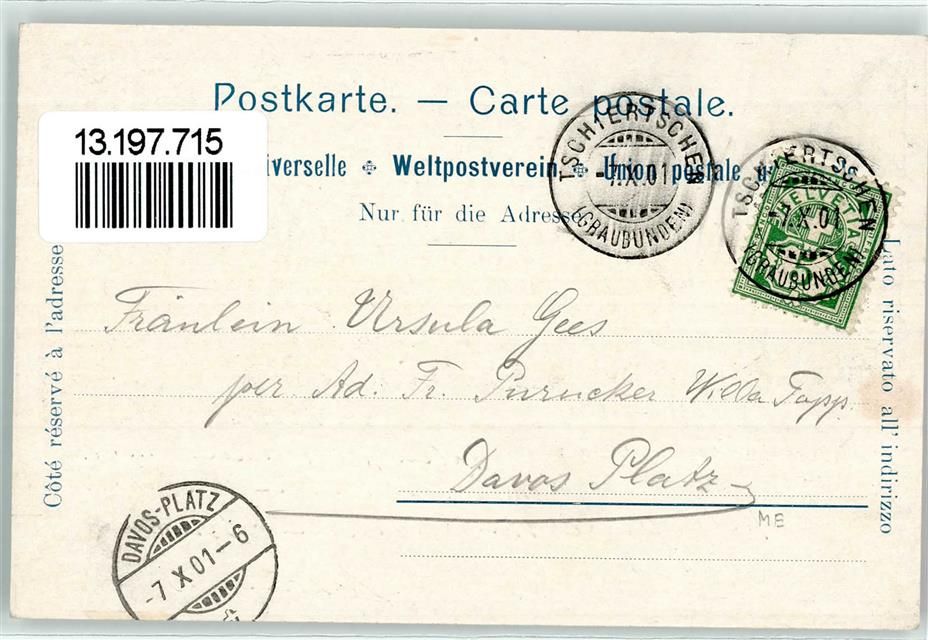 Postkarte. — Carte postale.
13.197.715
iverselle Weltpostverein. Union postale u
Nur für die Adresse
TSCHIERTSCHEN
-7.X.01
(GRAUBÜNDEN)
TSCHIERTSCHEN
-7.X.01
(GRAUBÜNDEN)
HELVETIA
Côté réservé à l'adresse
Lato riservato all' indirizzo
Fräulein Ursula Gees
per Ad. Fr. Purucker Villa Fopp.
Davos Platz
ME
DAVOS-PLATZ
-7.X.01-6